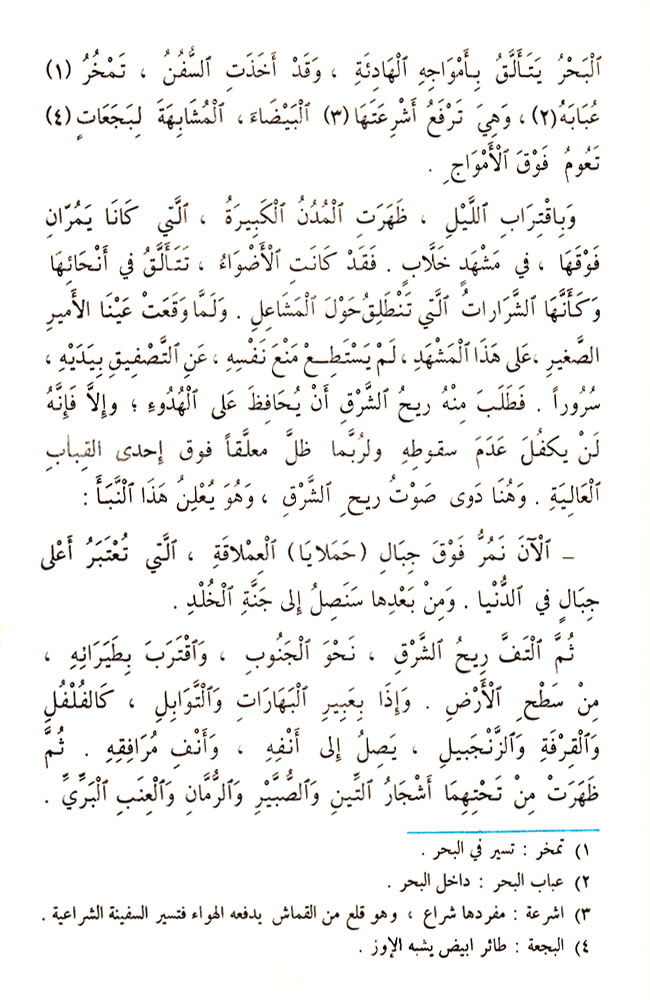 ٱلْبَحْرُ يَتَأَلَّقُ بِأَمْوَاجِهِ ٱلْهَادِئَةِ ، وَقَدْ أَخَذَتِ ٱلسُّفُنُ ، تَمْخُرُ (١)
عُبَابَهُ(٢) ، وَهِيَ تَرْفَعُ أَشْرِعَتَهَا (٣) ٱلْبَيْضَاءَ ، ٱلْمُشَابِهَةَ لِبَجَعَاتٍ (٤)
تَعُومُ فَوْقَ ٱلْأَمْوَاجِ .
وَبِاقْتِرَابِ ٱللَّيْلِ ، ظَهَرَتِ ٱلْمُدُنُ ٱلْكَبِيرَةُ ، ٱلَّتي كَانَا يَمُرَّانِ
فَوْقَهَا ، في مَشْهَدٍ خَلَّابٍ . فَقَدْ كَانَتِ ٱلْأَضْوَاءُ ، تَتَأَلَّقُ في أَنْحَائِهَا
وَكَأَنَّهَا ٱلشَّرَارَاتُ ٱلَّتي تَنْطَلِقُ حَوْلَ ٱلْمَشَاعِلِ . وَلَمَّا وَقَعَتْ عَيْنَا الأَميرِ
الصَّغيرِ ، عَلى هَذَا ٱلْمَشْهَدِ ، لَمْ يَسْتَطِعْ مَنْعَ نَفْسِهِ ، عَنِ ٱلتَّصْفِيقِ بِيَدَيْهِ ،
سُرُوراً . فَطَلَبَ مِنْهُ رِيحُ ٱلشَّرْقِ أَنْ يُحَافِظَ عَلى ٱلْهُدُوءِ ؛ وإلاَّ فَإِنَّهُ
لَنْ يكفُلَ عَدَمَ سقوطِهِ ولرُبَّما ظلَّ معلَّقاً فوق إحدى القبابِ
ٱلْعَالِيَةِ . وَهُنَا دَوى صَوْتُ رِيحِ ٱلشَّرْقِ ، وَهُوَ يُعْلِنُ هَذَا ٱلْنَّبَأَ :
ـ ٱلْآنَ نَمُرُّ فَوْقَ جِبَالِ (حَمَلايَا) ٱلْعِمْلاقَةِ ، ٱلَّتي تُعْتَبَرُ أَعْلى
جِبَالٍ في ٱلدُّنْيا . وَمِنْ بَعْدِها سَنَصِلُ إلى جَنَّةِ ٱلْخُلْدِ .
ثُمَّ ٱلْتَفَّ رِيحُ ٱلشَّرْقِ ، نَحْوَ ٱلْجَنُوبِ ، وَٱقْتَرَبَ بِطَيَرَانِهِ ،
مِنْ سَطْحِ ٱلْأَرْضِ . وَإِذَا بِعَبِيرِ ٱلْبَهَارَاتِ وَٱلْتَّوَابِلِ ، كَالفُلْفُلِ
وَٱلْقِرْفَةِ وَٱلزَّنْجَبيلِ ، يَصِلُ إلى أَنْفِهِ ، وَأَنْفِ مُرَافِقِهِ . ثُمَّ
ظَهَرَتْ مِنْ تَحْتِهِمَا أَشْجَارُ ٱلتِّينِ وَٱلصُّبَّيْرِ وَٱلرُّمَّانِ وَٱلْعِنَبِ ٱلْبَرِّيِّ .
١) تمخر : تسير في البحر .
٢) عباب البحر : داخل البحر .
٣) اشرعة : مفردها شراع ، وهو قلع من القماش يدفعه الهواء فتسير السفينة الشراعية .
٤) البجعة : طائر ابيض يشبه الإوز .